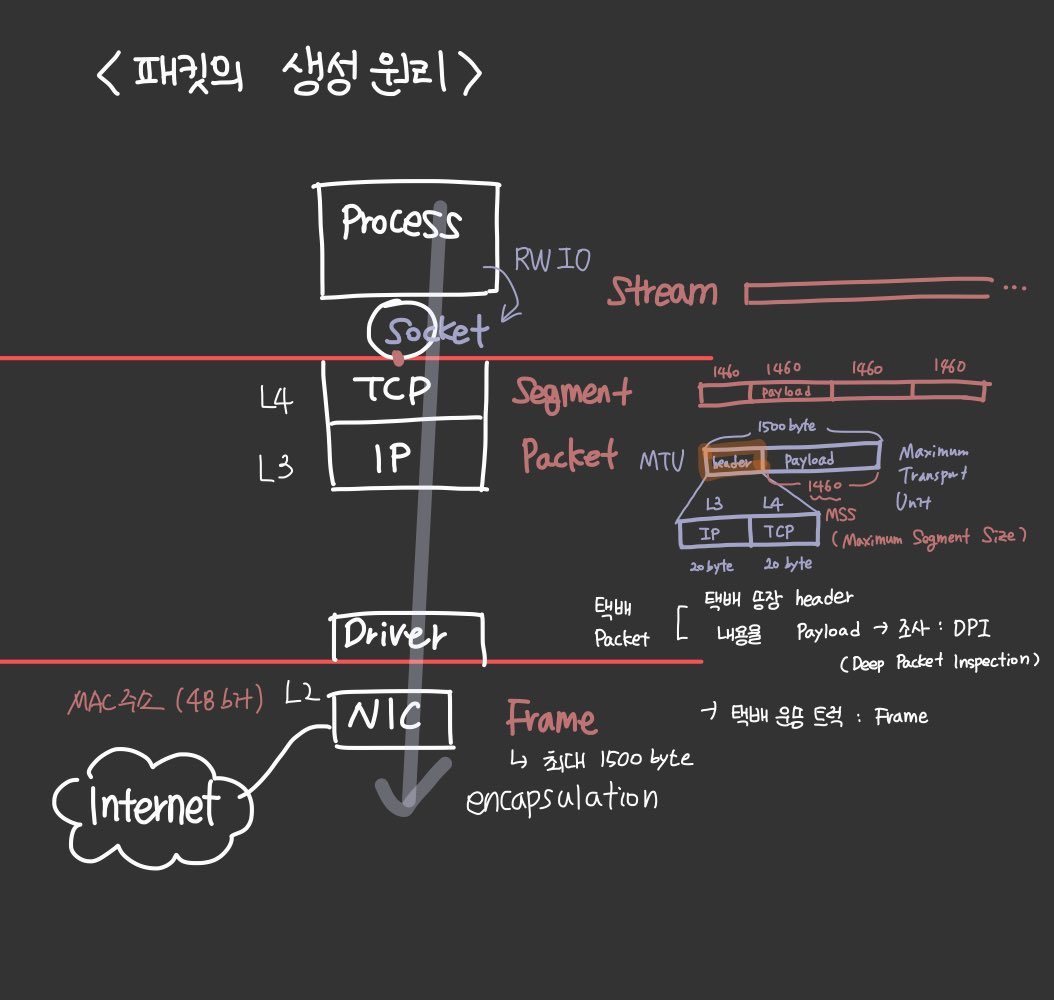 <패킷의 생성원리>
Process
RW IO
Stream ...
Socket
1460 1460 1460 1460
L4 TCP Segment
Payload
1500 byte
L3 IP Packet MTU header Payload Maximum
Transport
Unit
1460
L3 L4 MSS
IP TCP (Maximum Segment Size)
20byte 20 byte
택배 택배 송장 header
Packet 내용물 Payload → 조사 : DPI
(Deep Packet Inspection)
Driver
MAC주소 (48 bit) L2
NIC Frame → 택배 운송 트럭 : Frame
↳ 최대 1500 byte
Internet encapsulation